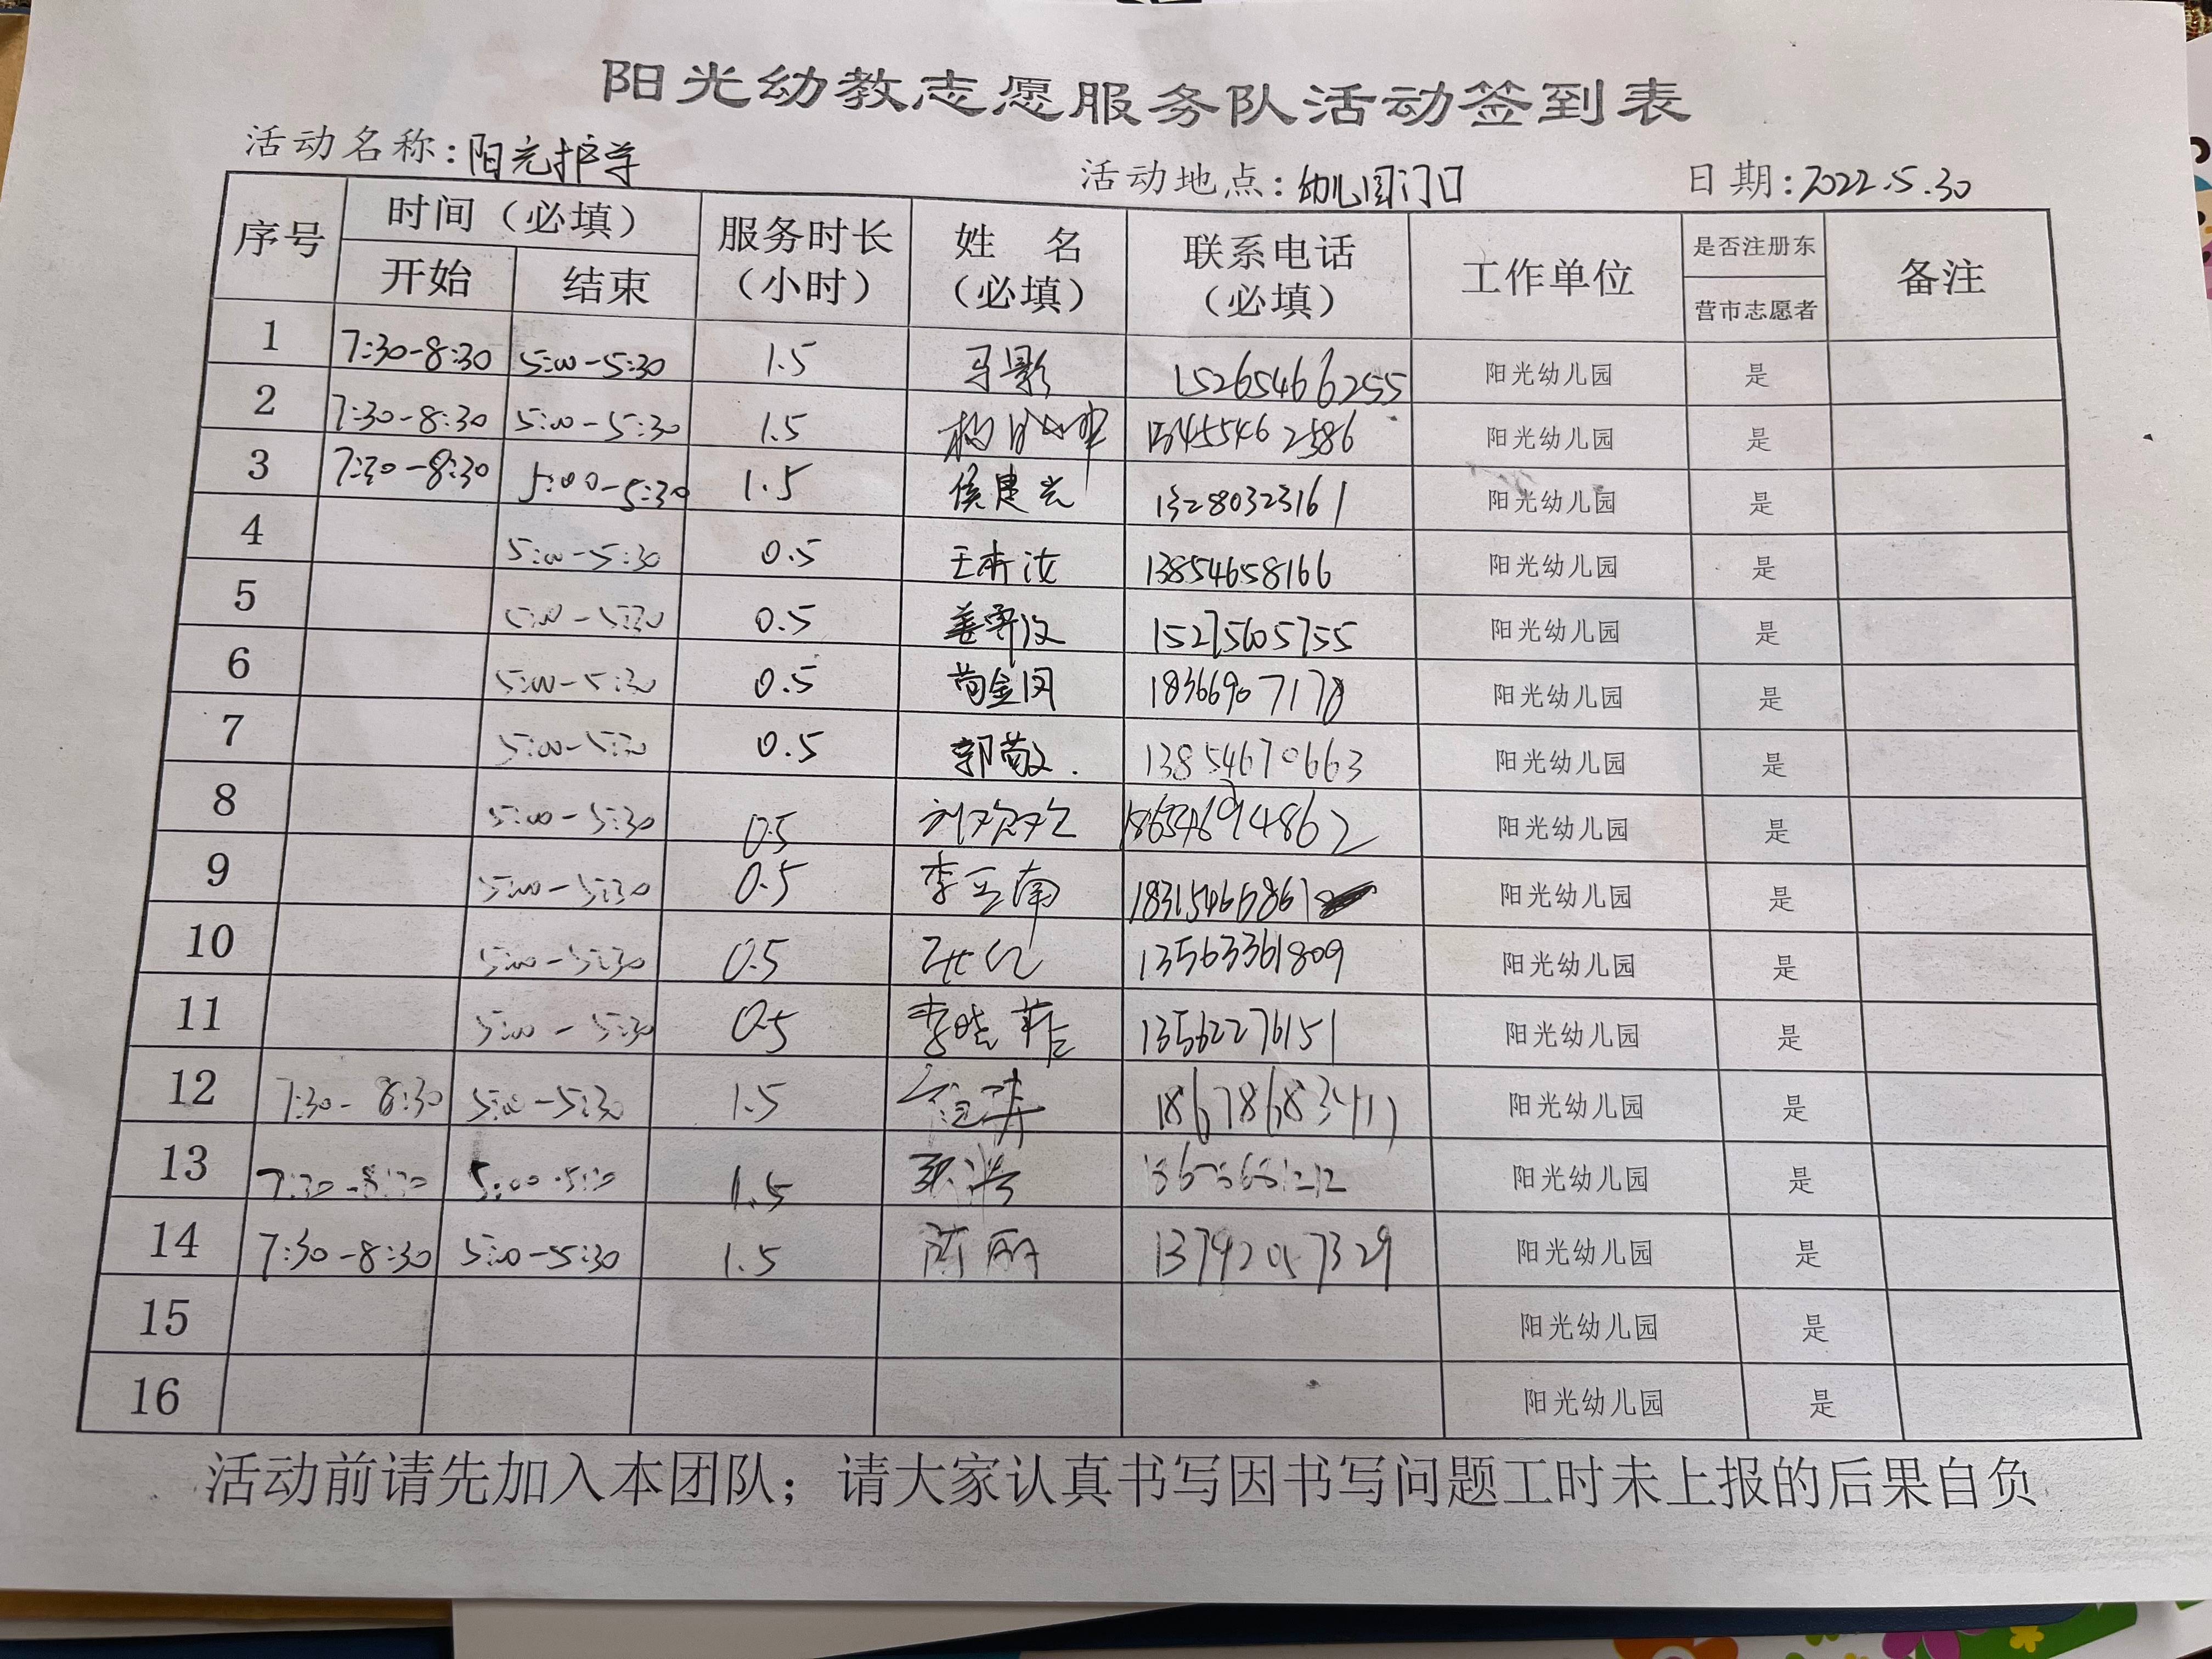 阳光幼教志愿服务队活动签到表
活动名称：阳光护学 活动地点：幼儿园门口 日期：2022.5.30
序号 时间（必填） 服务时长（小时） 姓 名（必填） 联系电话（必填） 工作单位 是否注册东营市志愿者 备注
开始 结束
1 7:30-8:30 5:00-5:30 1.5 马影 15265466255 阳光幼儿园 是
2 7:30-8:30 5:00-5:30 1.5 阳光幼儿园 是
3 7:30-8:30 5:00-5:30 1.5 侯建光 13280323161 阳光幼儿园 是
4 5:00-5:30 0.5 13854658166 阳光幼儿园 是
5 5:00-5:30 0.5 15275605755 阳光幼儿园 是
6 5:00-5:30 0.5 苟金凤 18366907178 阳光幼儿园 是
7 5:00-5:30 0.5 郭敬 13854670663 阳光幼儿园 是
8 5:00-5:30 0.5 刘欢欢 18654694862 阳光幼儿园 是
9 5:00-5:30 0.5 李亚南 18315466861 阳光幼儿园 是
10 5:00-5:30 0.5 13563361809 阳光幼儿园 是
11 5:00-5:30 0.5 李晓菲 13562276151 阳光幼儿园 是
12 7:30-8:30 5:00-5:30 1.5 阳光幼儿园 是
13 7:30-8:30 5:00-5:30 1.5 阳光幼儿园 是
14 7:30-8:30 5:00-5:30 1.5 陈丽 13792057329 阳光幼儿园 是
15 阳光幼儿园 是
16 阳光幼儿园 是
活动前请先加入本团队；请大家认真书写因书写问题工时未上报的后果自负